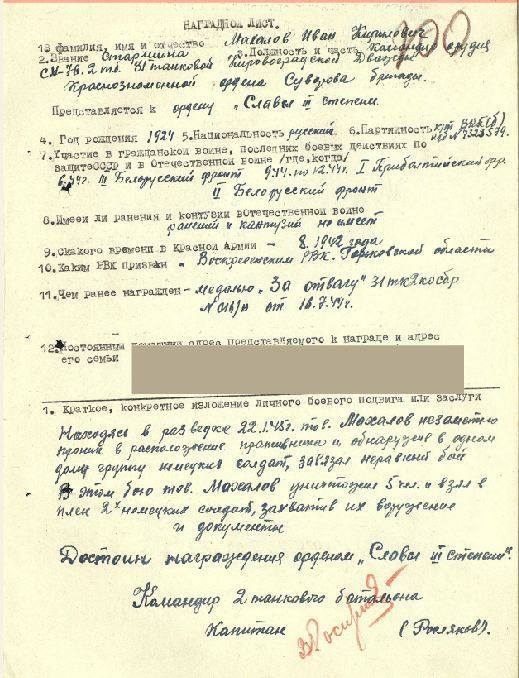 НАГРАДНОЙ ЛИСТ.
1З фамилия, имя и отчество Махалов Иван Кирилович
2.Звание Старшина 3.Должность и часть Командир орудия
СУ-76. 2 тб. 31 танковой Кировоградской Дважды
Краснознаменной ордена Суворова бригады.
Представляется к ордену „Славы III степени.
4. Год рождения 1924 5.Национальность русский 6.Партийность ВКП(б)
7.Участие в гражданской войне, последних боевых действиях по
защитеСССР и в Отечественной войне /где,когда/
III Белорусский фронт I Прибалтийский фр
II Белорусский фронт
8.Имеет ли ранения и контузии вОтечественной войне
ранений и кантузий не имеет
9.Скакого времени в Красной Армии - 8.1942 года
10.Каким РВК призван - Воскресенским РВК. Горковской области
11.Чем ранее награжден - медалью „За отвагу" 31 тккзкосбр
от 16.7.44г.
12.Постоянный домашний адрес представляемого к награде и адрес
его семьи
1. Краткое, конкретное изложение личного боевого подвига или заслуги
Находясь в разведке 22.1.45г. тов. Махалов незаметно
проник в расположение противника и, обнаружив в одном
дому группу немецких солдат, завязал неравный бой
В этом бою тов. Махалов уничтожил 5 чел. и взял в
плен 2х немецких солдат, захватив их вооружение
и документы
Достоин награждения орденом „Славы III степени".
Командир 2 танкового батальона
Капитан (Росляков).